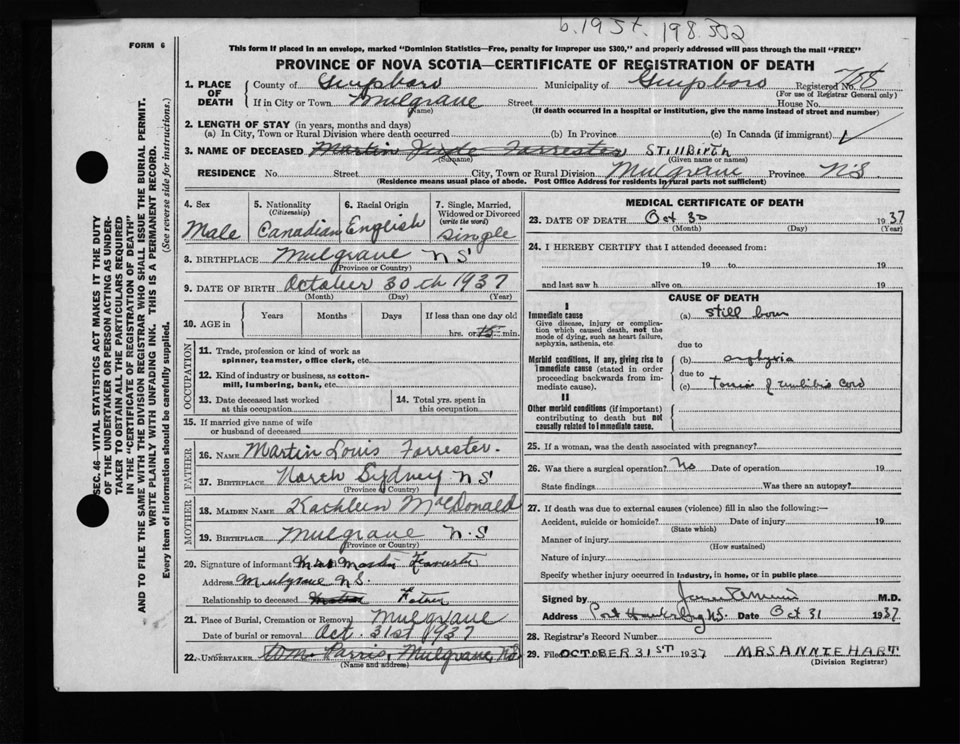 b. 1937. 198.302
FORM 6
This form if placed in an envelope, marked "Dominion Statistics—Free, penalty for improper use $300," and properly addressed will pass through the mail "FREE"
PROVINCE OF NOVA SCOTIA—CERTIFICATE OF REGISTRATION OF DEATH
SEC. 46—VITAL STATISTICS ACT MAKES IT THE DUTY
OF THE UNDERTAKER OR PERSON ACTING AS UNDER-
TAKER TO OBTAIN ALL THE PARTICULARS REQUIRED
IN THE "CERTIFICATE OF REGISTRATION OF DEATH"
AND TO FILE THE SAME WITH THE DIVISION REGISTRAR WHO SHALL ISSUE THE BURIAL PERMIT.
WRITE PLAINLY WITH UNFADING INK. THIS IS A PERMANENT RECORD.
Every item of information should be carefully supplied. (See reverse side for instructions.)
1. PLACE OF DEATH County of Guysboro Municipality of Guysboro Registered No. 768
(For use of Registrar General only)
If in City or Town Mulgrave Street House No.
(Name) (If death occurred in a hospital or institution, give the name instead of street and number)
2. LENGTH OF STAY (in years, months and days)
(a) In City, Town or Rural Division where death occurred (b) In Province (c) In Canada (if immigrant) ✓
3. NAME OF DECEASED Martin Forrester STillBirth
(Surname) (Given name or names)
RESIDENCE No. Street City, Town or Rural Division Mulgrave Province NS
(Residence means usual place of abode. Post Office Address for residents in rural parts not sufficient)
4. Sex 5. Nationality 6. Racial Origin 7. Single, Married,
(Citizenship) Widowed or Divorced
(write the word)
Male Canadian English Single
8. BIRTHPLACE Mulgrave NS
(Province or Country)
9. DATE OF BIRTH October 30th 1937
(Month) (Day) (Year)
10. AGE in Years Months Days If less than one day old
hrs. or 15 min.
OCCUPATION
11. Trade, profession or kind of work as
spinner, teamster, office clerk, etc.
12. Kind of industry or business, as cotton-
mill, lumbering, bank, etc.
13. Date deceased last worked
at this occupation
14. Total yrs. spent in
this occupation
15. If married give name of wife
or husband of deceased
FATHER
16. NAME Martin Louis Forrester.
17. BIRTHPLACE North Sydney NS
(Province or Country)
MOTHER
18. MAIDEN NAME Kathleen MacDonald
19. BIRTHPLACE Mulgrave N.S
(Province or Country)
20. Signature of informant Martin Forrester
Address Mulgrave N.S.
Relationship to deceased Mother Father
21. Place of Burial, Cremation or Removal Mulgrave
Date of burial or removal Oct. 31st 1937
22. UNDERTAKER Wm. Parris, Mulgrave, NS
(Name and address)
MEDICAL CERTIFICATE OF DEATH
23. DATE OF DEATH Oct 30 1937
(Month) (Day) (Year)
24. I HEREBY CERTIFY that I attended deceased from:
19 to 19
and last saw h alive on 19
CAUSE OF DEATH
I
Immediate cause (a) Still born
Give disease, injury or complica-
tion which caused death, not the
mode of dying, such as heart failure,
asphyxia, asthenia, etc.
due to
Morbid conditions, if any, giving rise to
immediate cause (stated in order
proceeding backwards from im-
mediate cause).
(b) asphyxia
due to
(c) Torsion of umbilic Cord
II
Other morbid conditions (if important)
contributing to death but not
causally related to immediate cause.
25. If a woman, was the death associated with pregnancy?
26. Was there a surgical operation? No Date of operation 19
State findings Was there an autopsy?
27. If death was due to external causes (violence) fill in also the following:—
Accident, suicide or homicide? Date of injury 19
(State which)
Manner of injury
(How sustained)
Nature of injury
Specify whether injury occurred in industry, in home, or in public place
Signed by M.D.
Address Port Hawkesbury NS. Date Oct 31 1937
28. Registrar's Record Number
29. Filed OCTOBER 31ST 1937 MRS ANNIE HART
(Division Registrar)